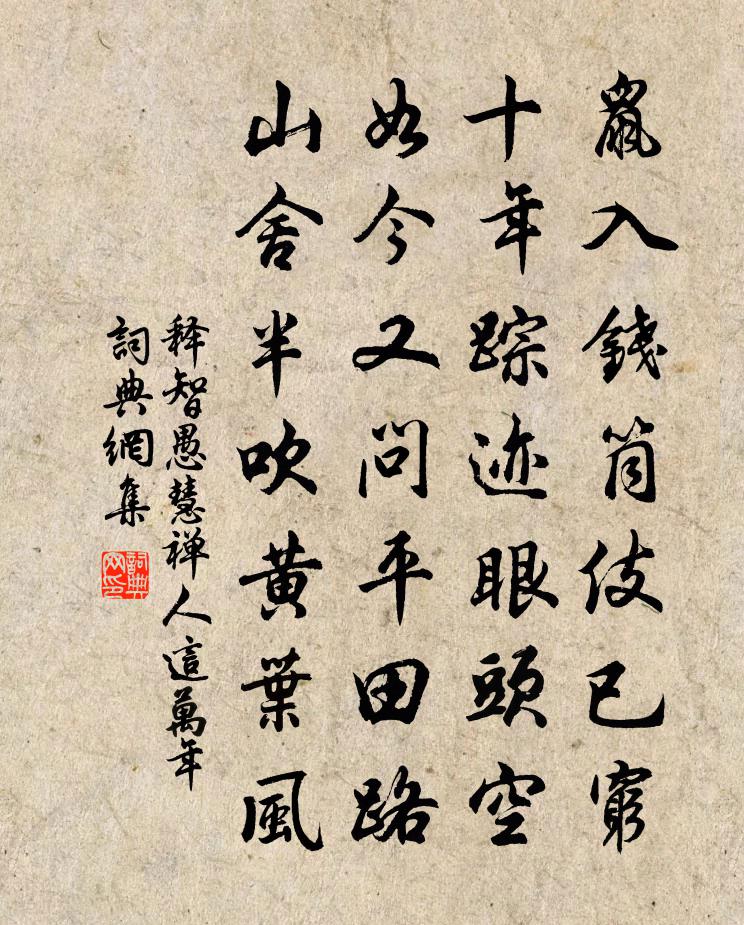 鼠入錢筒伎已窮
十年踪迹眼頭空
如今又問平田路
山舍半吹黃葉風
释智愚慧禅人這萬年
詞典網集
詞典網印